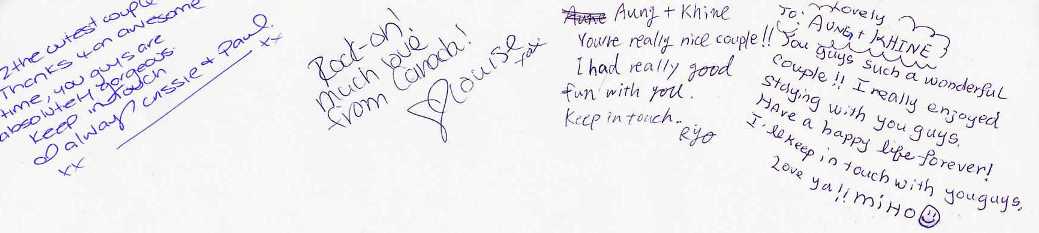 2 the cutest couple
Thanks 4 an awesome
time, you guys are
absolutely gorgeous
Keep in touch
always Cassie + Paul.
xx xx
Rock-on!
Much love
from Canada!
Louise
xox
Aung + Khine
You're really nice couple!!
I had really good
fun with you.
Keep in touch.
Riyo
Lovely
To: AUNG + KHINE
You guys such a wonderful
couple!! I really enjoyed
staying with you guys.
Have a happy life forever!
I'll keep in touch with you guys.
Love ya!! MiHO